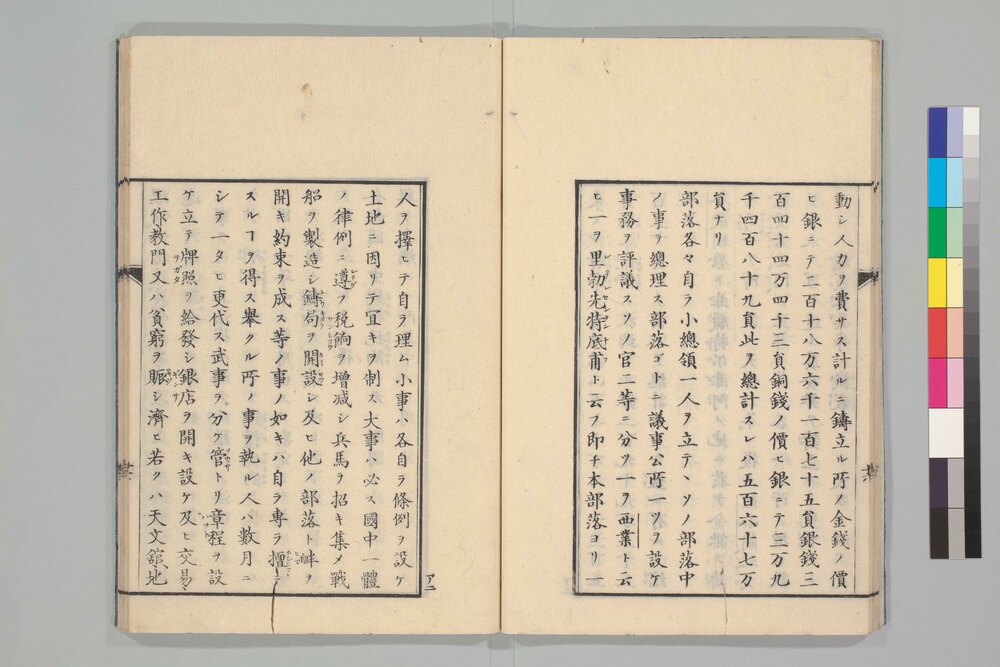 動シ人カヲ費サス計ルニ鑄立ル所ノ金錢ノ價
ヒ銀ニテ二百十八万六千一百七十五負銀錢三
百四十四万四千三負銅錢ノ價ヒ銀ニテ三万九
千四百八十九負此ヲ總計スレハ五百六十七万
負ナリ
部落各々自ラ小總領一人ヲ立テヽソノ部落中
ノ事ヲ總理ス部落ゴトニ議事公所一ツヲ設ケ
事務ヲ評議スソノ官二等ニ分ツ一ヲ西業ト云
ヒ一ヲ里勃先特底甫ト云フ即チ本部落ヨリ一
人ヲ擇ヒテ自ラ理ム小事ハ各自ラ條例ヲ設ケ
土地ニ因リテ冝キヲ制ス大事ハ必ス國中一體
ノ律例ニ遵フ税餉ヲ增减シ兵馬ヲ招キ集メ戰
船ヲ製造シ鑄局ヲ開設シ及ヒ他ノ部落ト衅ヲ
開キ約束ヲ成ス等ノ事ノ如キハ自ラ專ラ擅ニ
スルヿヲ得ス舉クル所ノ事ヲ執ル人ハ數月ニ
シテ一タヒ更代ス武事ヲ分ケ管トリ章程ヲ設
ケ立テ牌照ヲ給發シ銀店ヲ開キ設ケ及ヒ交易
工作教門又ハ貧窮ヲ賑シ濟ヒ若クハ天文舘地